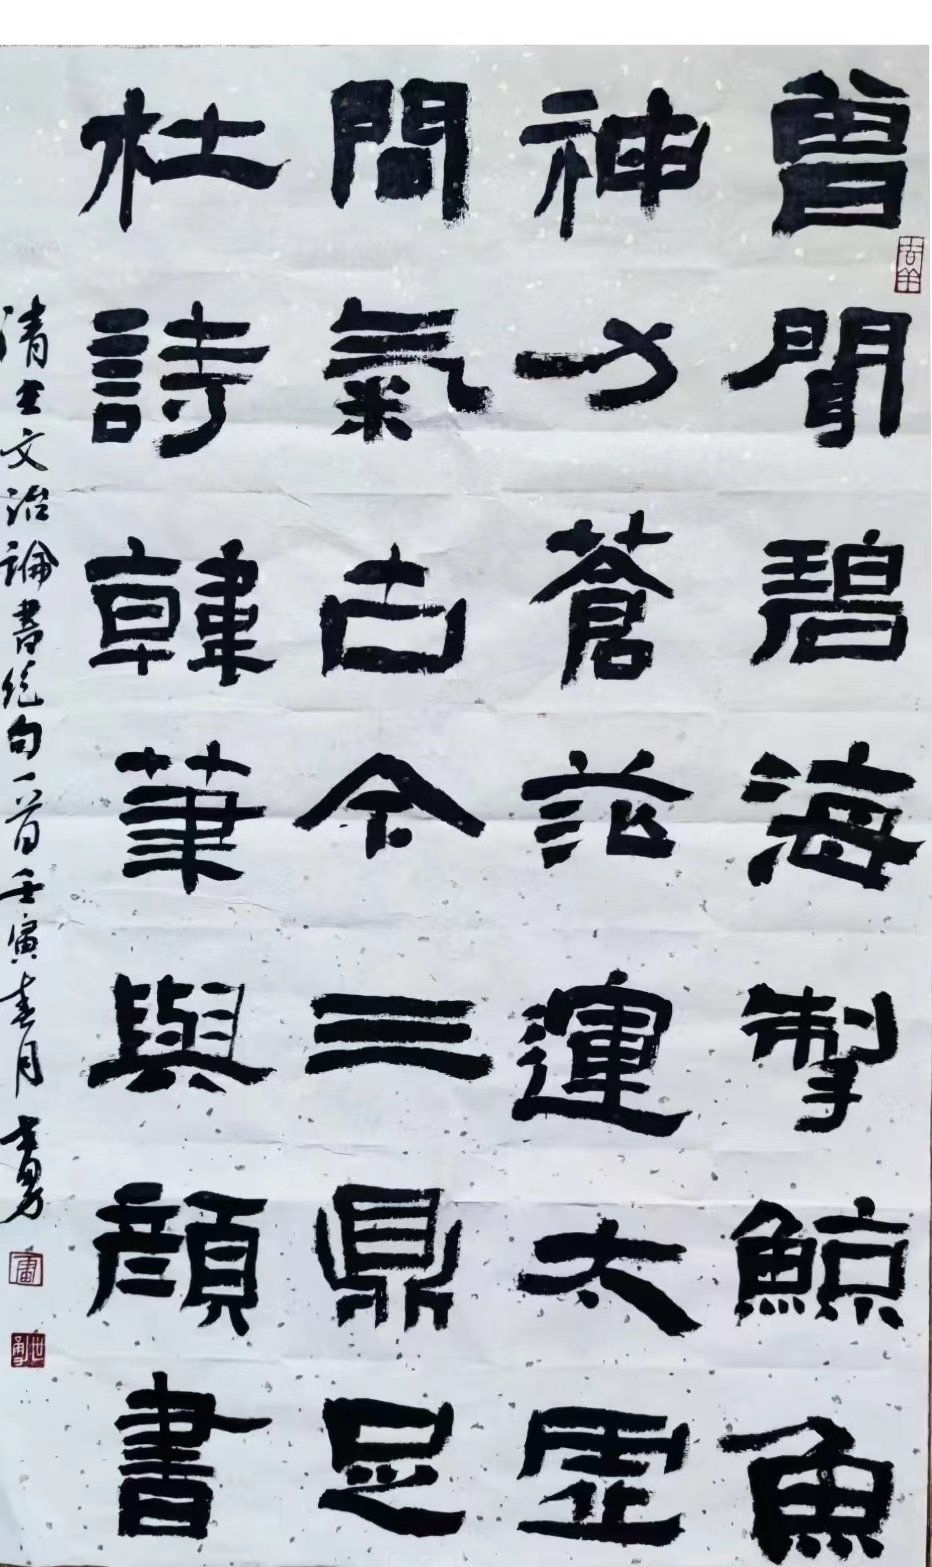 曾聞碧海掣鯨魚
神力蒼茫運太虛
間氣古今三鼎足
杜詩韓筆與顏書
清王文治論書絕句一首壬寅春月世勇書